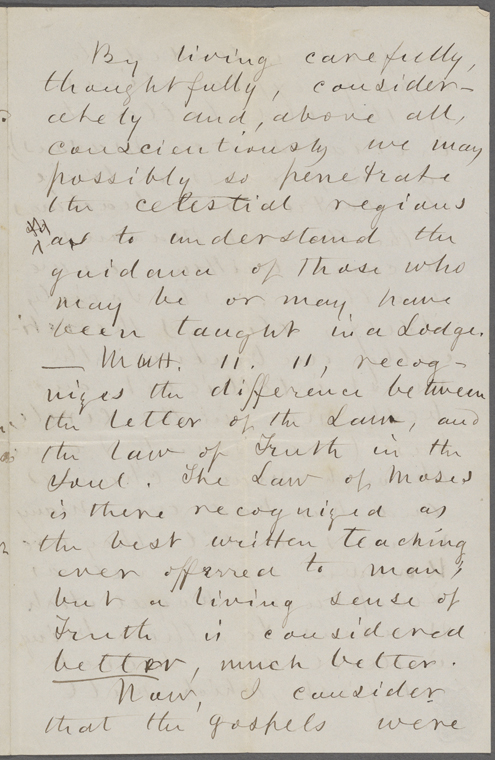 By living carefully,
thoughtfully, consider-
ately and, above all,
conscientiously we may
possibly so penetrate
the celestial regions
as to understand the
guidance of those who
may be or may have
been taught in a Lodge.
— Matt. 11. 11, recog-
nizes the difference between
the letter of the Law, and
the law of Truth in the
Soul. The Law of Moses
is there recognized as
the best written teaching
ever offered to man;
but a living sense of
Truth is considered
better, much better.
Now, I consider
that the gospels were